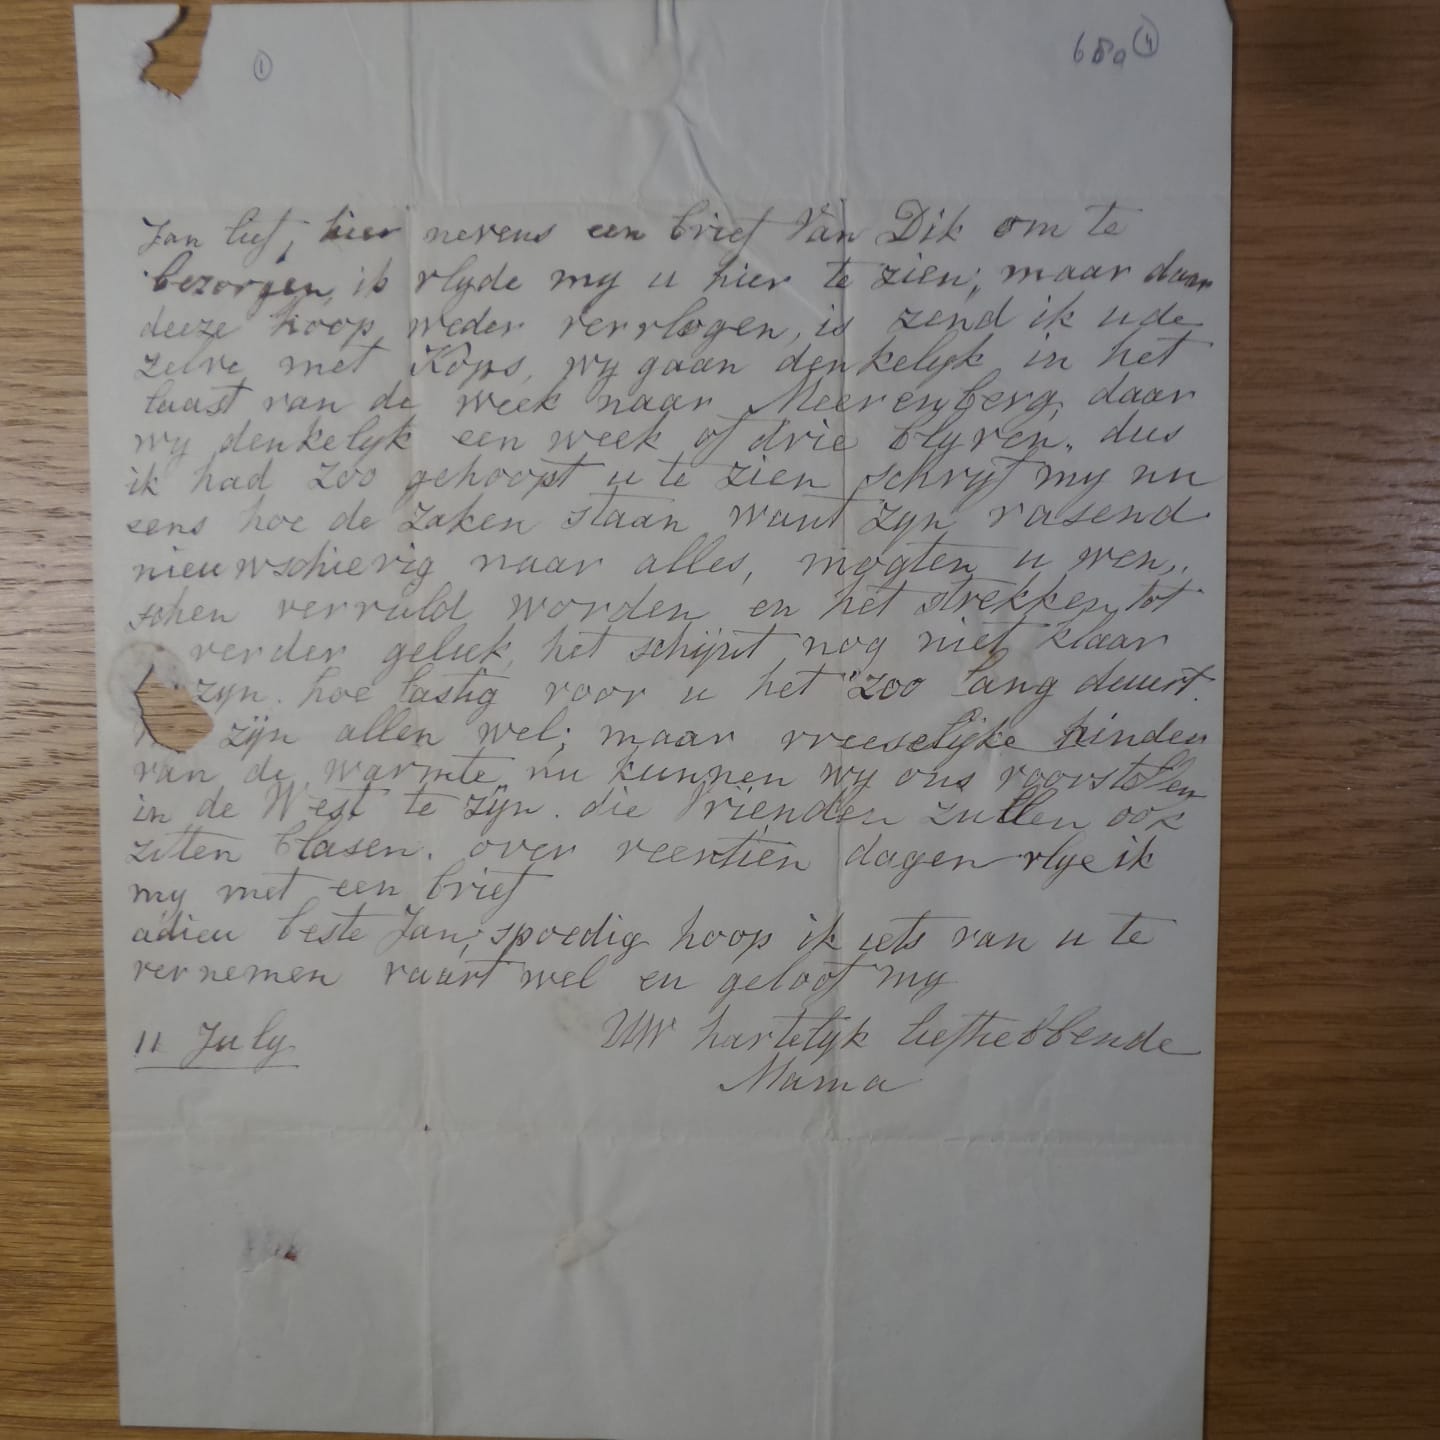 ① 680 ④
Jan lief, hier nevens een brief Van Dik om te
bezorgen, ik vlyde my u hier te zien; maar daar
deeze hoop weder vervlogen, is zend ik u de
zelve met Kops, wy gaan denkelyk in het
laast van de week naar Meerenberg, daar
wy denkelyk een week of drie blyven. dus
ik had zoo gehoopt u te zien schryf my nu
eens hoe de zaken staan want zyn rasend
nieuwschierig naar alles, mogten u wen„
schen vervuld worden en het strekken tot
verder geluk, het schijnt nog niet klaar
zyn. hoe lastig voor u het zoo lang duurt.
zijn allen wel; maar vreeselijke hinder
van de warmte nu kunnen wy ons voorstellen
in de West te zijn. die Vrienden zullen ook
zitten blasen. over veertien dagen vlye ik
my met een brief
adieu beste Jan, spoedig hoop ik iets van u te
vernemen vaart wel en geloof my
UW hartelyk liefhebbende
11 July
Mama